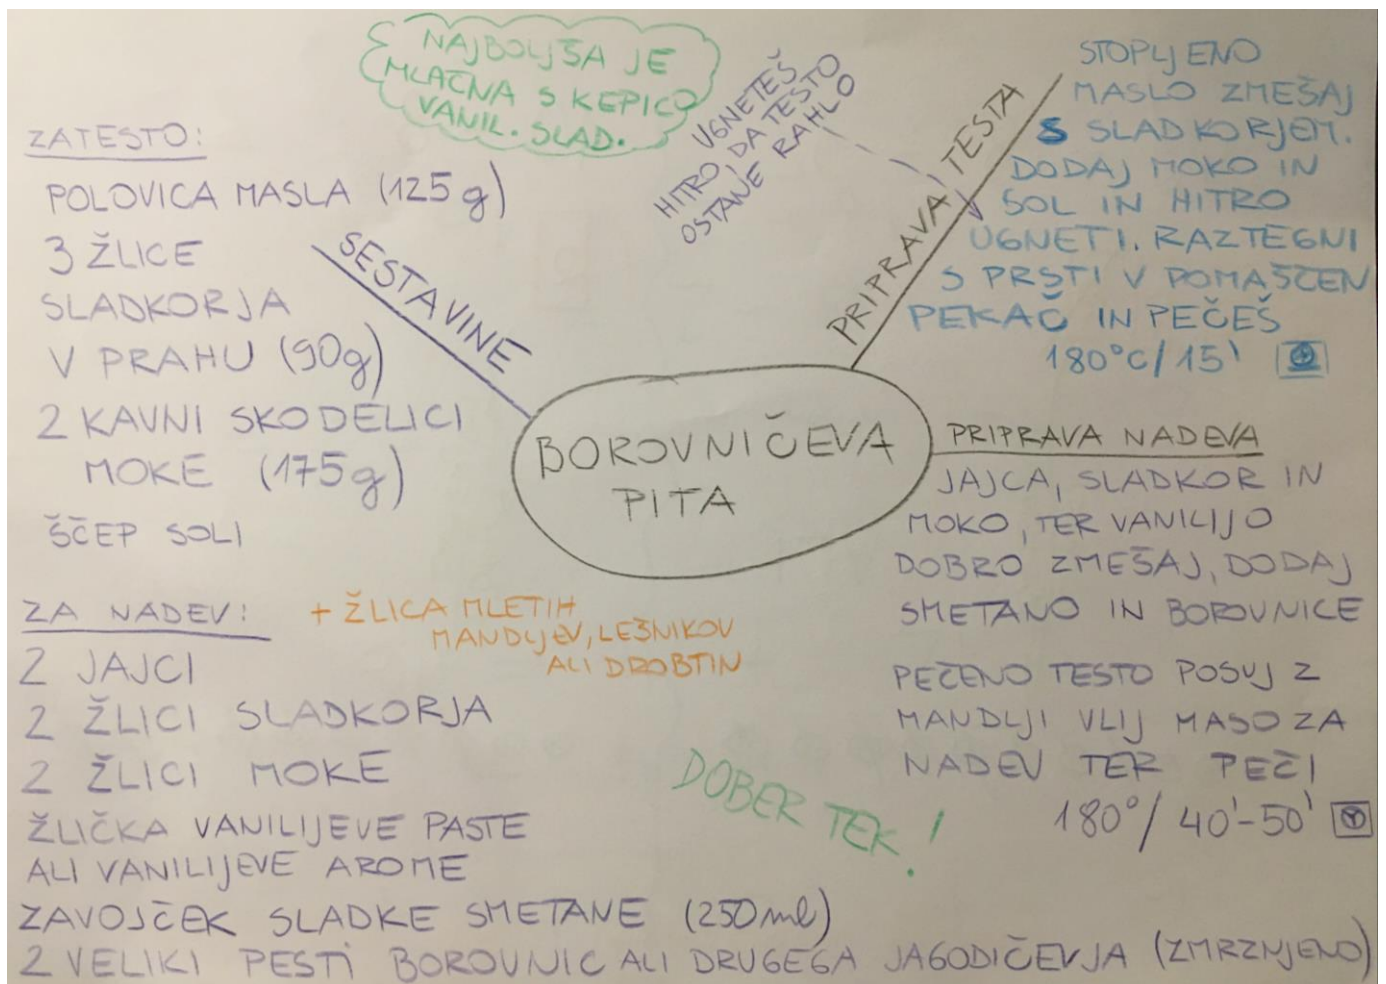 BOROVNIČEVA
PITA
SESTAVINE
ZA TESTO:
POLOVICA MASLA (125g)
3 ŽLICE
SLADKORJA
V PRAHU (90g)
2 KAVNI SKODELICI
MOKE (175g)
ŠČEP SOLI
ZA NADEV:
+ ŽLICA MLETIH
MANDLJEV, LEŠNIKOV
ALI DROBTIN
2 JAJCI
2 ŽLICI SLADKORJA
2 ŽLICI MOKE
ŽLIČKA VANILIJEVE PASTE
ALI VANILIJEVE AROME
ZAVOJČEK SLADKE SMETANE (250ml)
2 VELIKI PESTI BOROVNIC ALI DRUGEGA JAGODIČEVJA (ZMRZNJENO)
NAJBOLJŠA JE
MLAČNA S KEPICO
VANIL. SLAD.
UGNETEŠ
HITRO, DA TESTO
OSTANE RAHLO
PRIPRAVA TESTA
STOPLJENO
MASLO ZMEŠAJ
S SLADKORJEM.
DODAJ MOKO IN
SOL IN HITRO
UGNETI. RAZTEGNI
S PRSTI V POMAŠČEN
PEKAČ IN PEČEŠ
180°C/15'
PRIPRAVA NADEVA
JAJCA, SLADKOR IN
MOKO, TER VANILIJO
DOBRO ZMEŠAJ, DODAJ
SMETANO IN BOROVNICE
PEČENO TESTO POSUJ Z
MANDLJI VLIJ MASO ZA
NADEV TER PEČI
180°/40'-50'
DOBER TEK!